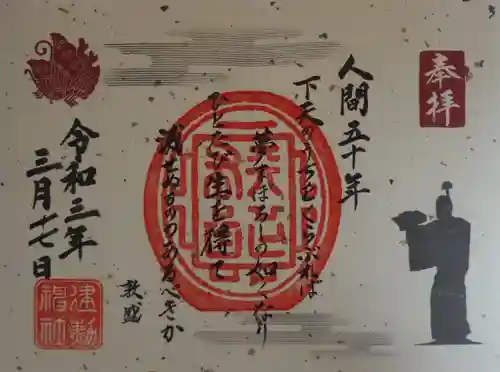 奉拝
人間五十年
下天のうちをくらぶれば
夢まぼろしの如くなり
ひとたび生を得て
滅せぬもののあるべきか
敦盛
令和三年
三月十七日
建勲
神社